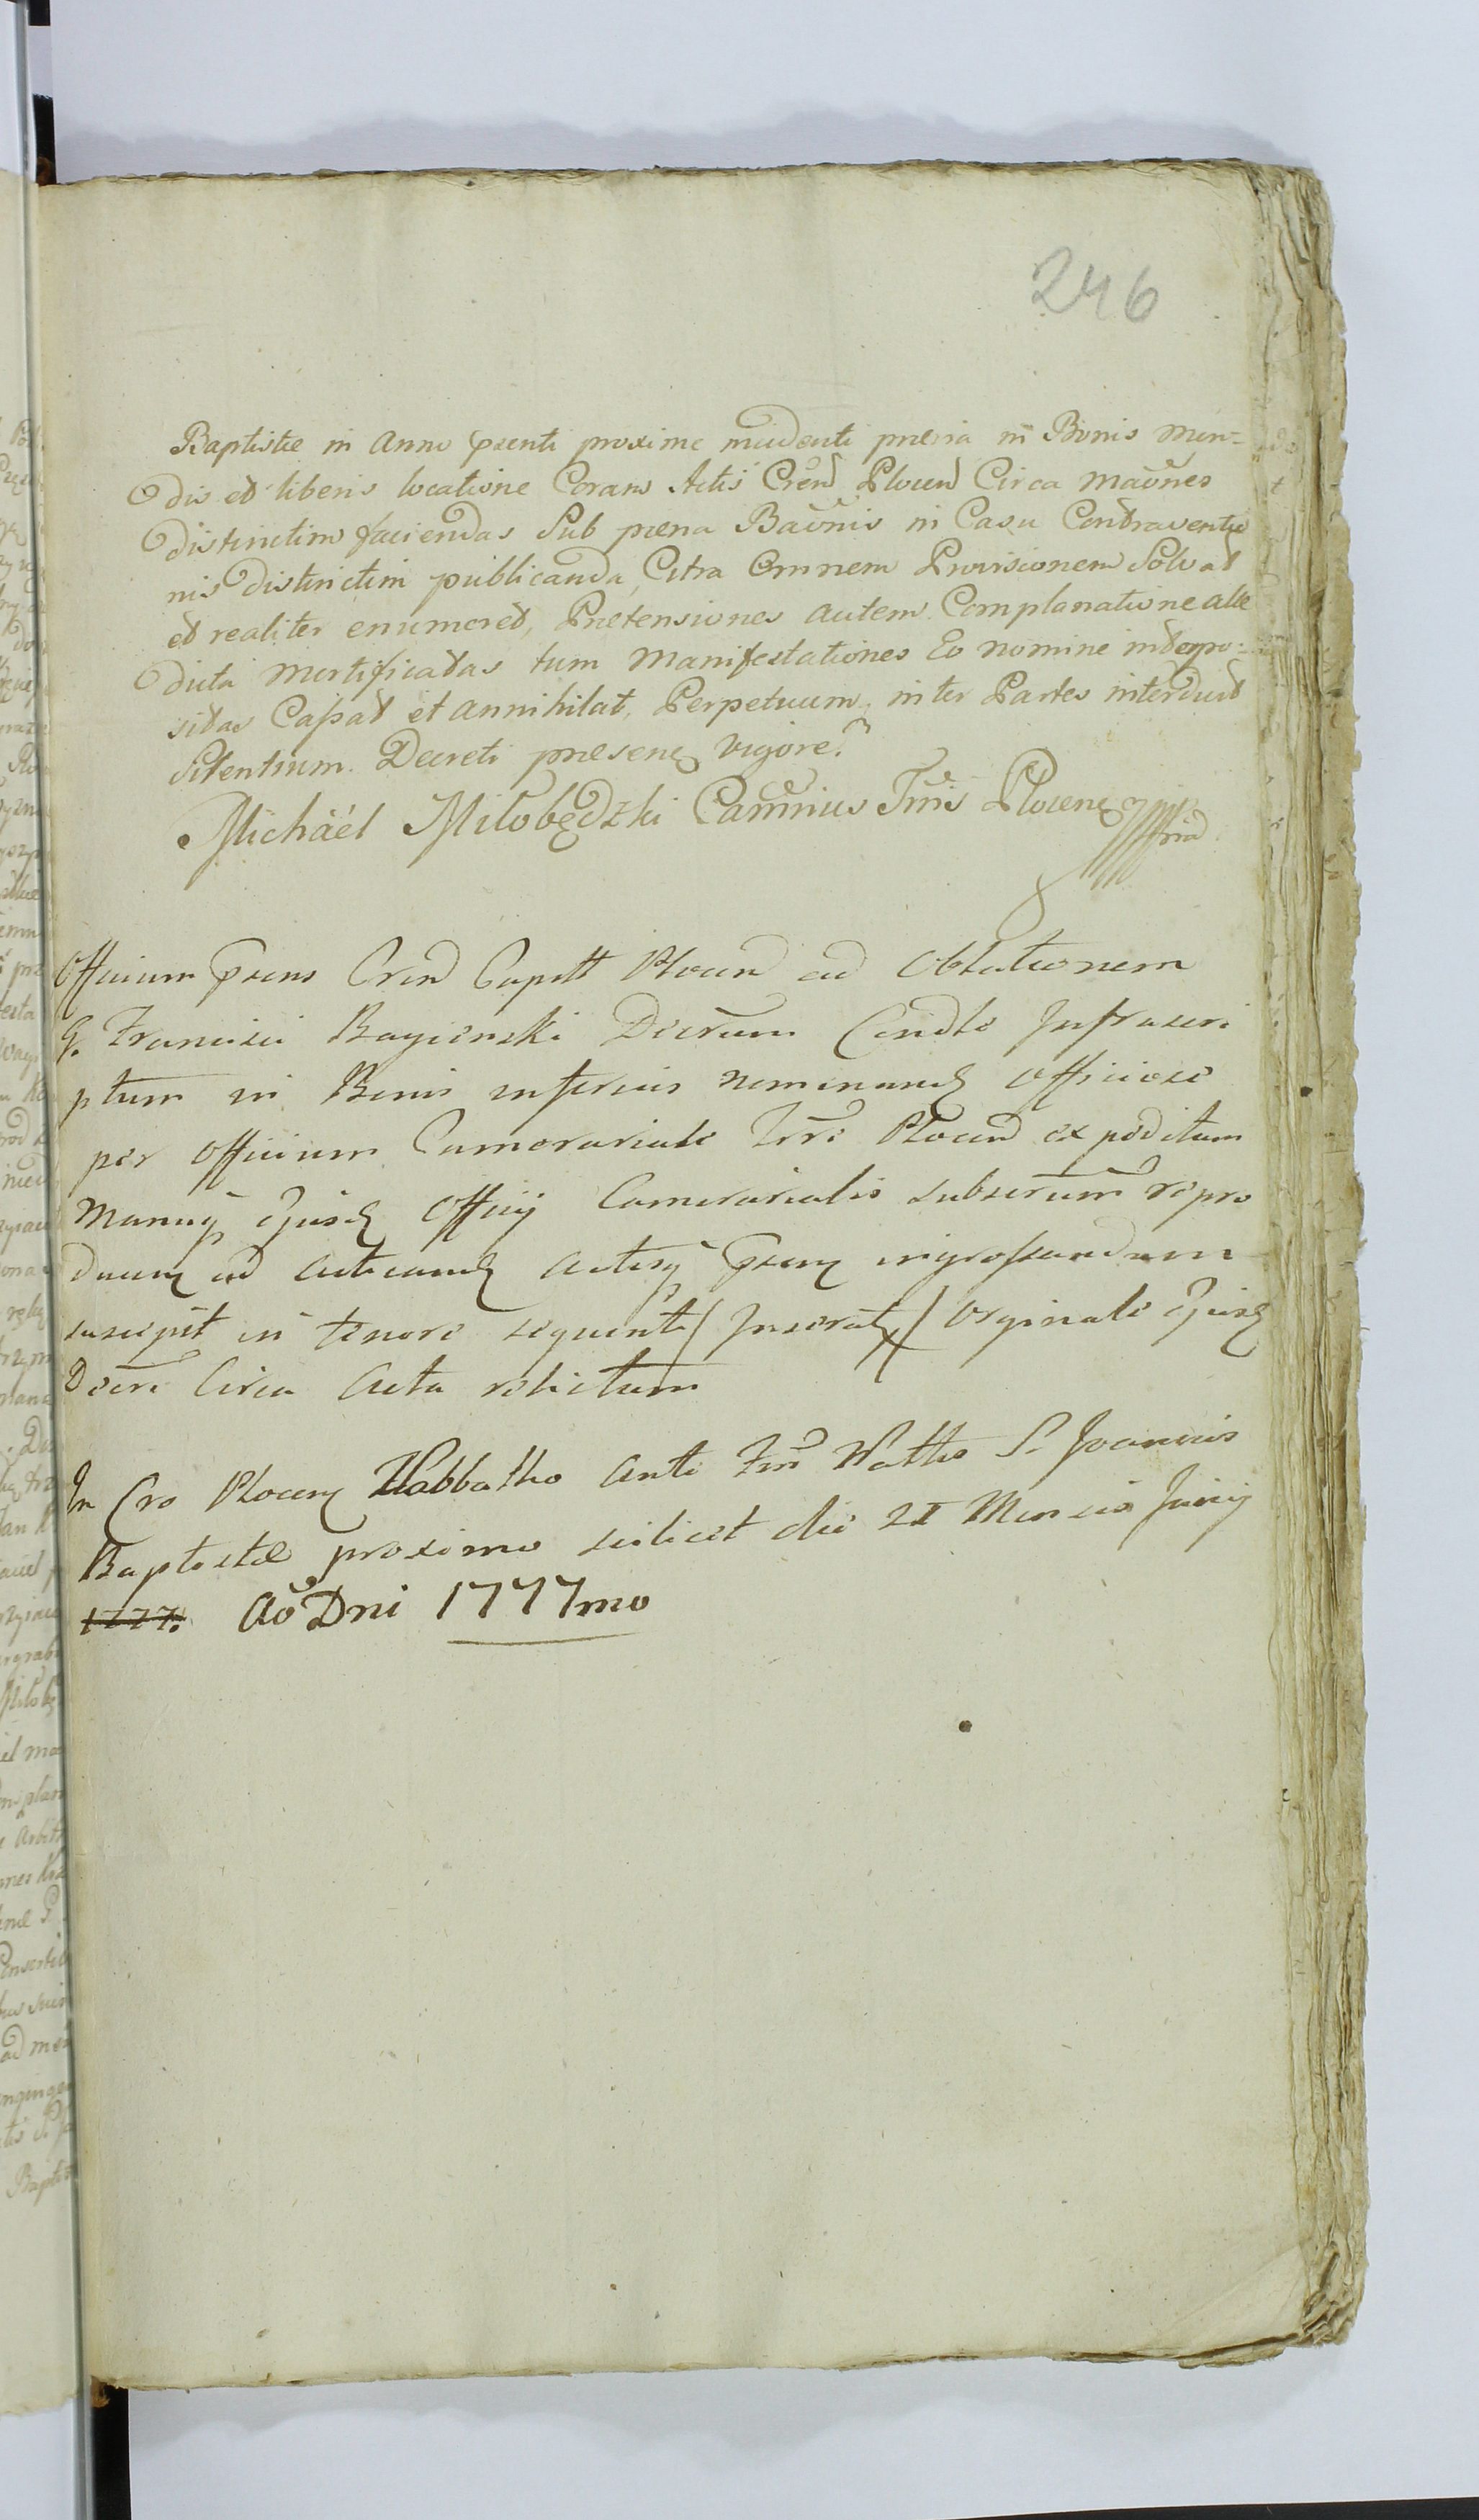 246
Baptistæ in Anno pñenti proxime incidenti prævia in Bonis mun=
dis et liberis locatione Coram Actis Cren̄ Plocen̄ Circa maōnes
distinctim faciendas Sub pœna Baōnis in Casu Contraventio
nis distinctim publicanda, Citra Omnem Provisionem Solvat
et realiter enumeret, Prætensiones autem Complanatione alte
dicta mortificatas tum Manifestationes Eo nomine interpo=
sitas Cassat et annihilat, Perpetuum inter Partes interducit
Silentium. Decreti præsenꝫ vigore.
Michäel Miłobędzki Camrius Trrīs Plocenꝫ mpria
Officium prens Cren̄ Capitt Plocen̄ ad Oblationem
G. Francisci Decrum Condle Infrascri
ptum in Bonis inferius nominanꝫ officiose
per officium Camerariale Trre Plocen̄ expeditum
Manuqꝫ ejusꝫ Officij Camerarialis subscrum repro
ducenꝫ ad acticanꝫ Actisqꝫ prenꝫ ingrossandum
suscepit in tenore sequenti / Inseratꝫ / Orginale ejusꝫ
Decri Circa Acta relictum
In Cro Plocenꝫ Sabbatho ante Fm̄ Natto S. Joannis
Baptistæ proximo scilicet die 21 Mensis Junij
1777. Aō Dni 1777mo